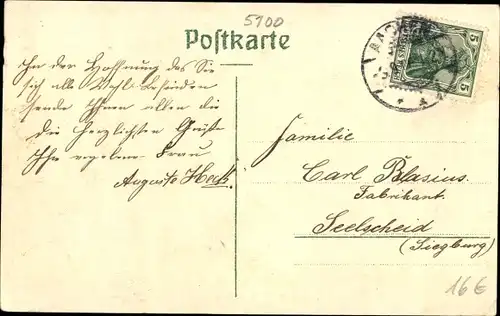 5100
Postkarte
AACHEN
5
5
In der Hoffnung das Sie
sich alle Wohl befinden
sende Ihnen allen die
die Herzlichsten Grüße
Ihre ergebene Frau
Auguste Heck.
Familie
Carl Blasius.
Fabrikant.
Seelscheid
(Siegburg)
16€